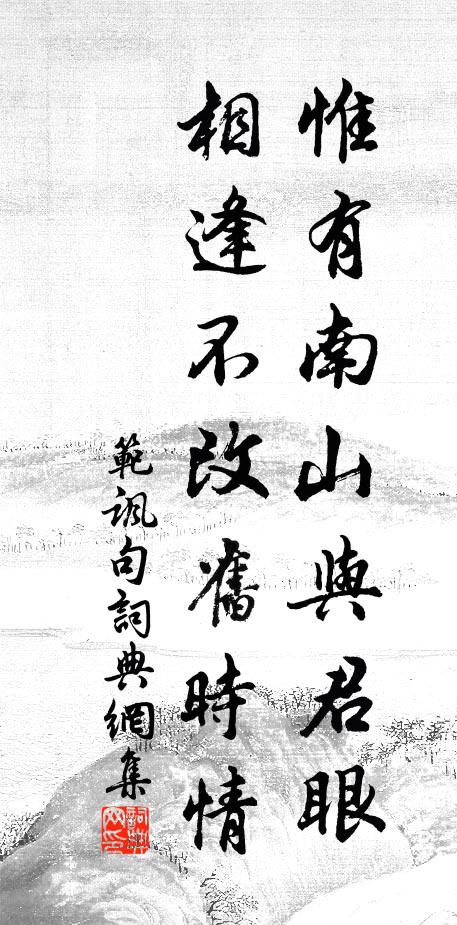 惟有南山與君眼
相逢不改舊時情
範諷句詞典網集